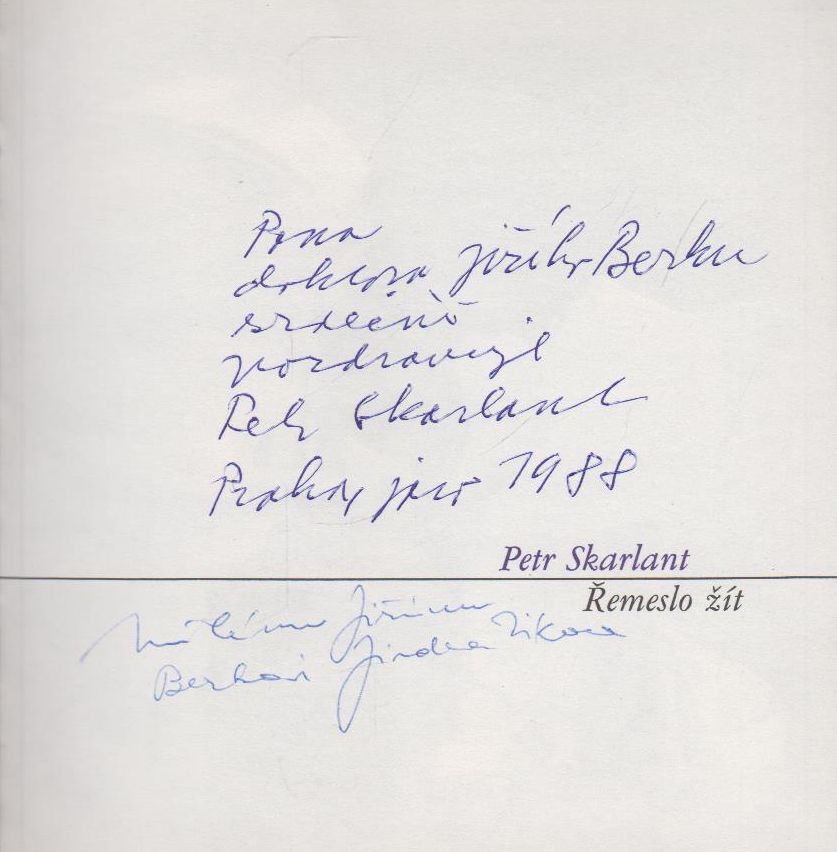 Pana
doktora Jiřího Berku
srdečně
pozdravuje
Petr Skarlant
Praha, jaro 1988
Petr Skarlant
Řemeslo žít
Milému Jiřímu
Berkovi Jindra